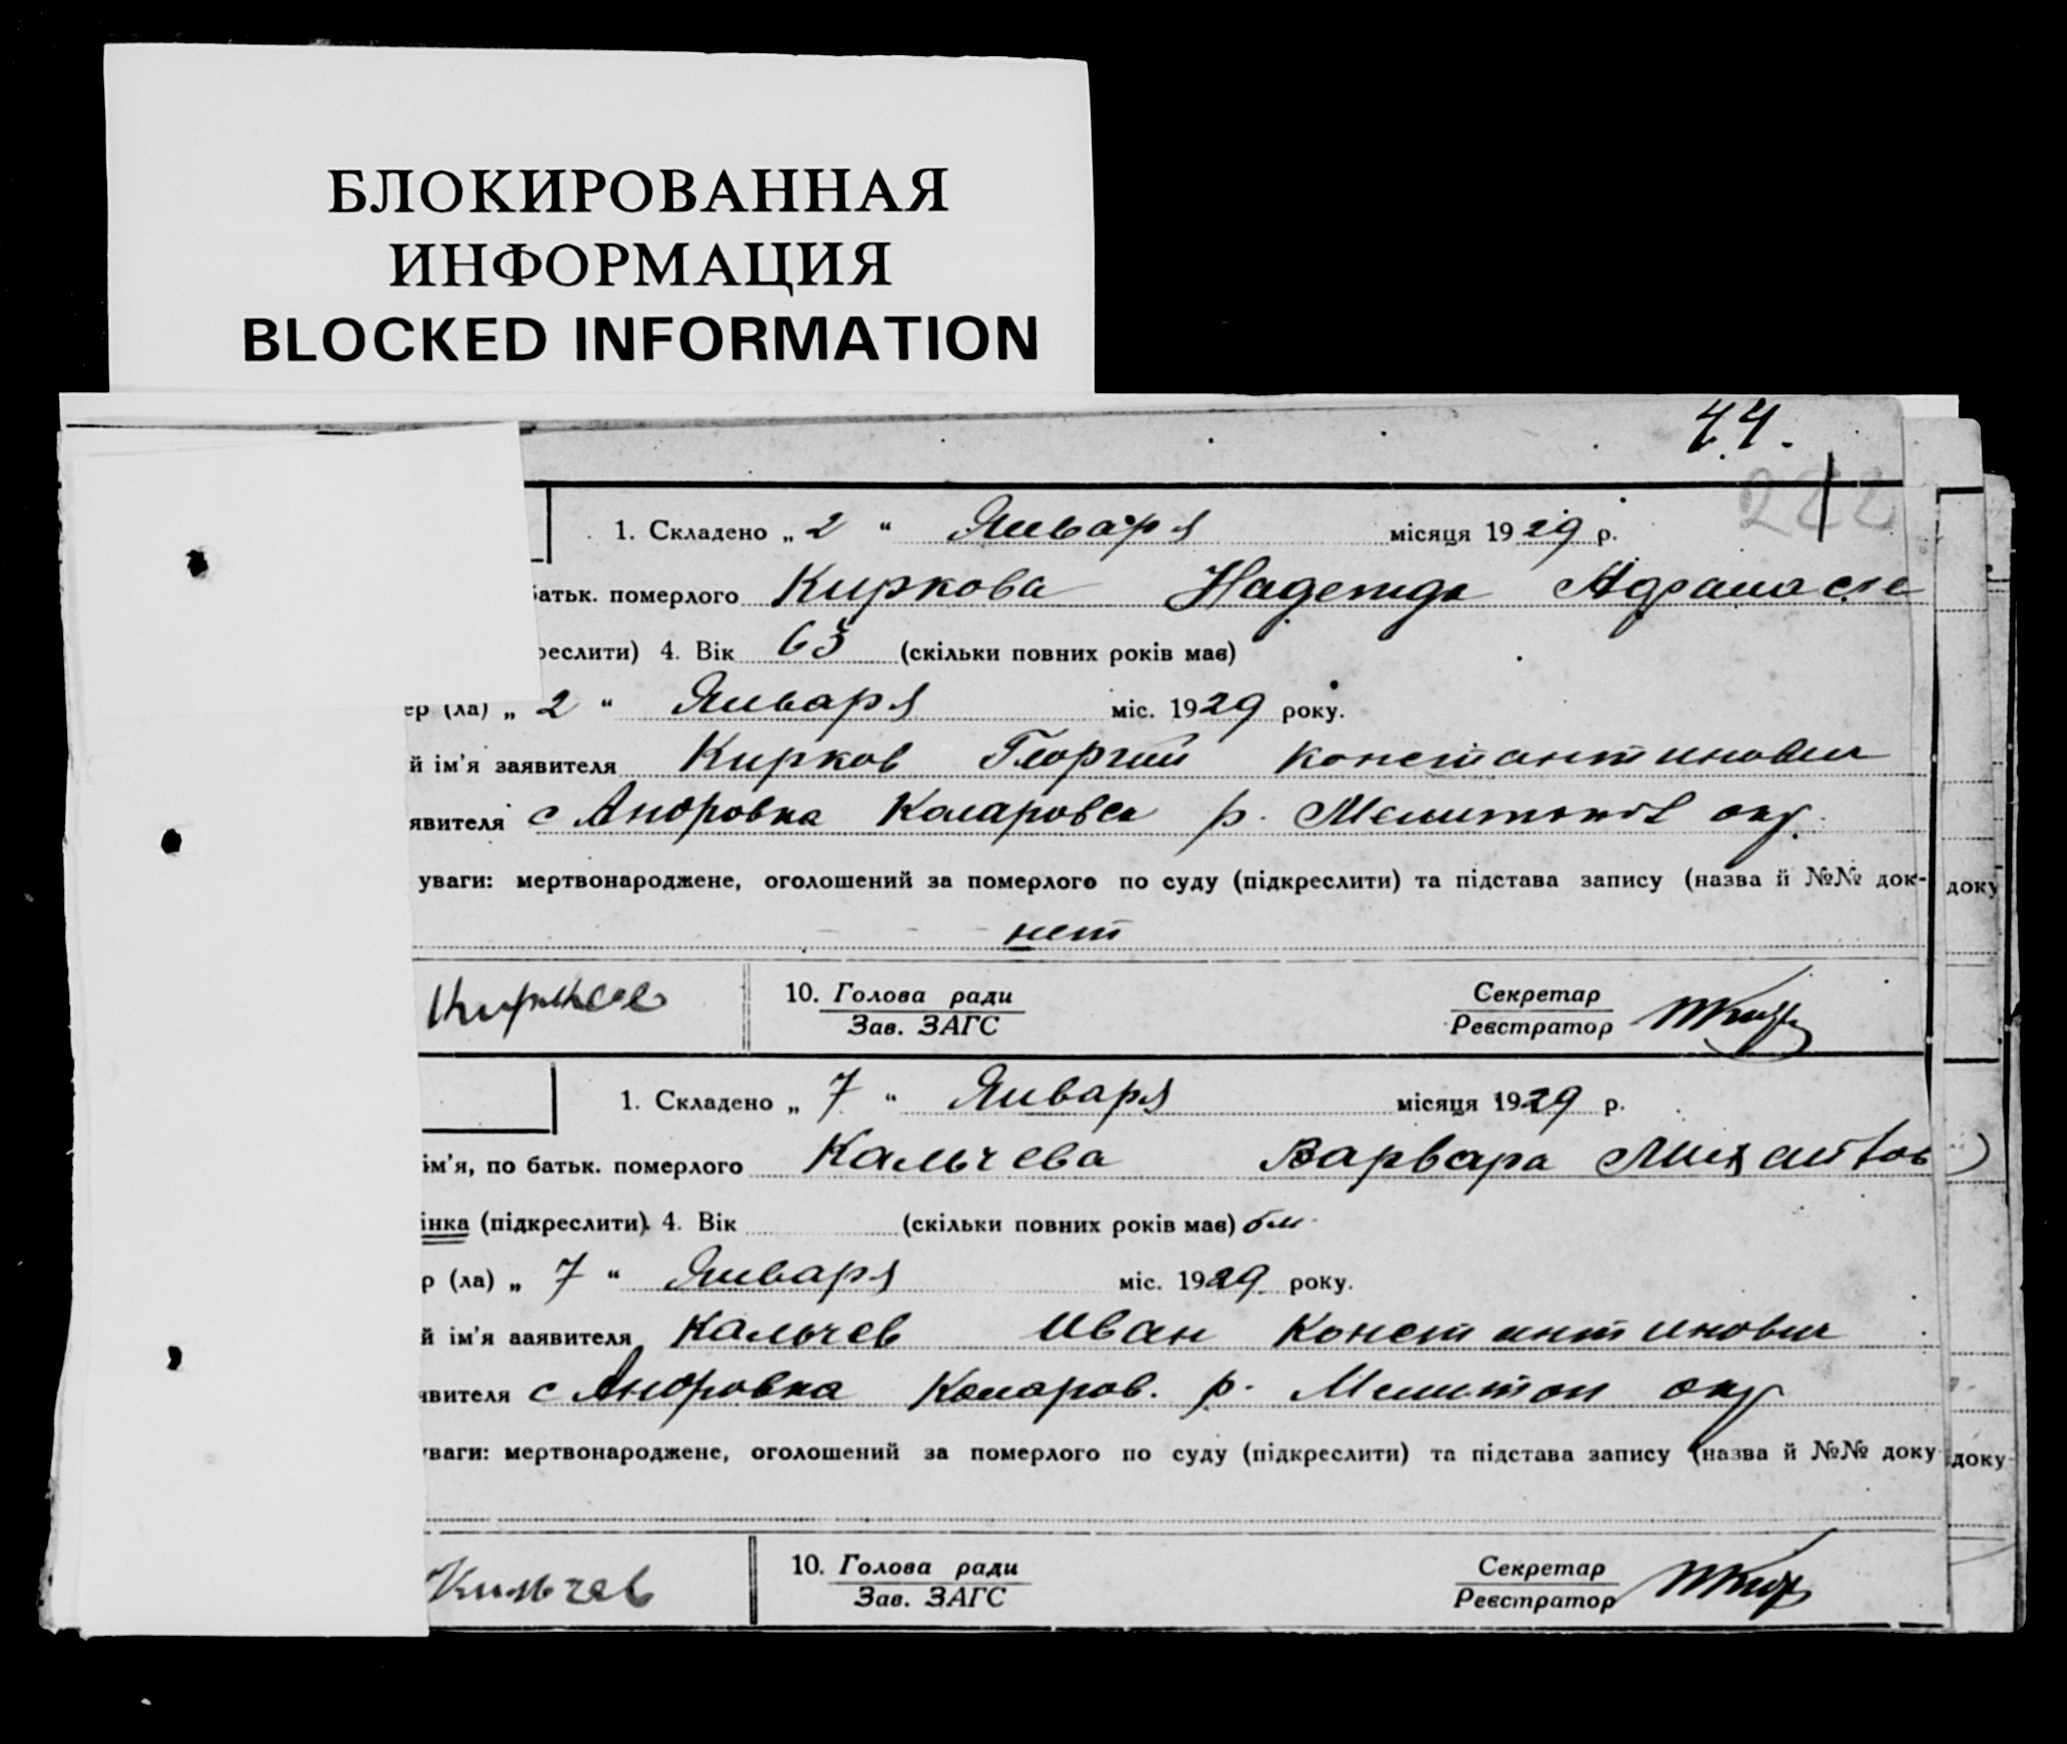 БЛОКИРОВАННАЯ
ИНФОРМАЦИЯ
BLOCKED INFORMATION
44.
222
1. Складено „ 2 “ Января місяця 1929 р.
батьк. померлого Киркова Надежда
реслити) 4. Вік 63 (скільки повних років має)
ер (ла) „ 2 “ Января міс. 1929 року.
й ім'я заявителя Кирков Георгий Константинович
явителя с Андровка Коларовск р. Мелитопол окр.
уваги: мертвонароджене, оголошений за померлого по суду (підкреслити) та підстава запису (назва й №№ док-
доку
нет
10. Голова ради
Зав. ЗАГС
Секретар
Реєстратор
1. Складено „ 7 “ Января місяця 1929 р.
ім'я, по батьк. померлого Кальчева Варвара Михайлов
інка (підкреслити). 4. Вік (скільки повних років має) 6м
р (ла) „ 7 “ Января міс. 1929 року.
й ім'я заявителя Кальчев Иван Константинович
явителя с Андровка Коларов. р. Мелитоп окр
уваги: мертвонароджене, оголошений за померлого по суду (підкреслити) та підстава запису (назва й №№ доку
доку
Кальчев
10. Голова ради
Зав. ЗАГС
Секретар
Реєстратор